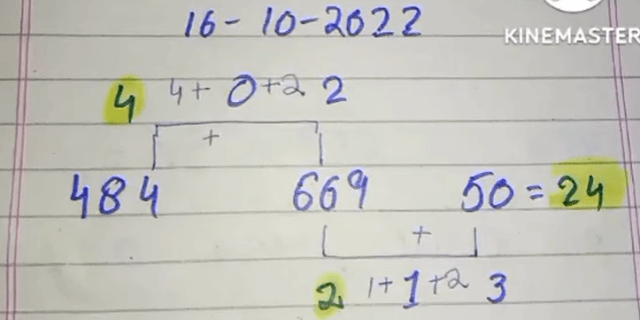 16-10-2022
KINEMASTER
4 4+ 0 +2 2
+
484 669 50 = 24
+
2 1+ 1 +2 3